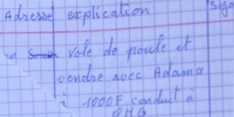 Adresse explication
Vole de poule et
vendre avec Adama
à 1000F conduit à